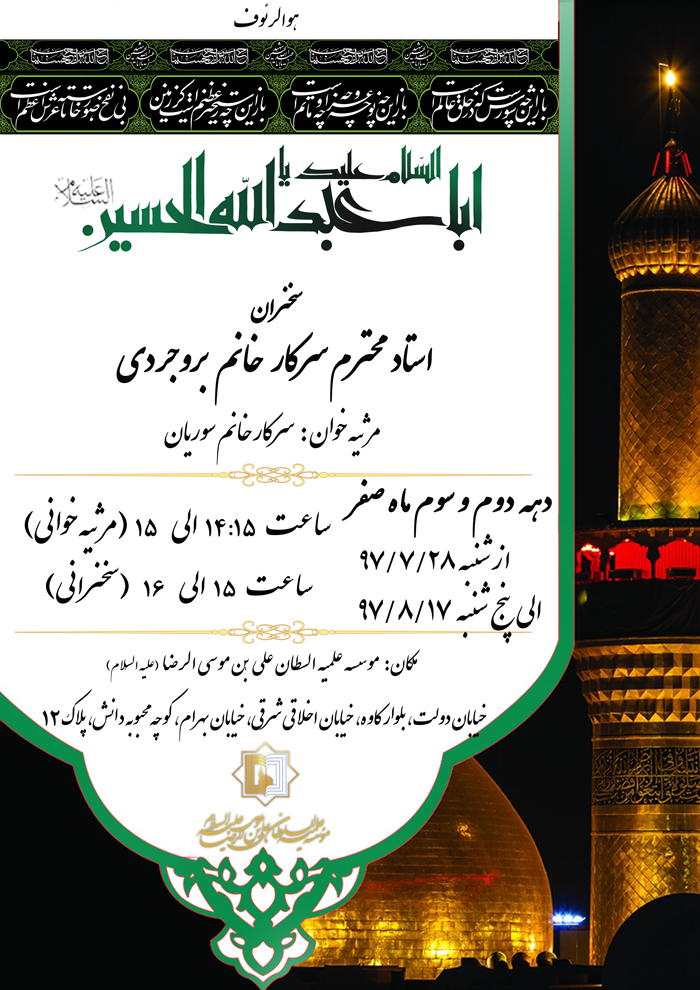 هوالرئوف
باز این چه شورش است که در خلق عالم است باز این چه نوحه و چه عزا و چه ماتم است باز این چه رستخیز عظیم است کز زمین بی نفخ صور خاسته تا عرش اعظم است
السلام علیک یا
ابا عبدالله الحسین علیه السلام
سخنران
استاد محترم سرکار خانم بروجردی
مرثیه خوان: سرکار خانم سوریان
دهه دوم و سوم ماه صفر
از شنبه ۹۷/۷/۲۸
الی پنج شنبه ۹۷/۸/۱۷
ساعت ۱۴:۱۵ الی ۱۵ (مرثیه خوانی)
ساعت ۱۵ الی ۱۶ (سخنرانی)
مکان: موسسه علمیه السطان علی بن موسی الرضا (علیه السلام)
خیابان دولت، بلوار کاوه، خیابان اخلاقی شرقی، خیابان بهرام، کوچه محبوبه دانش، پلاک ۱۲